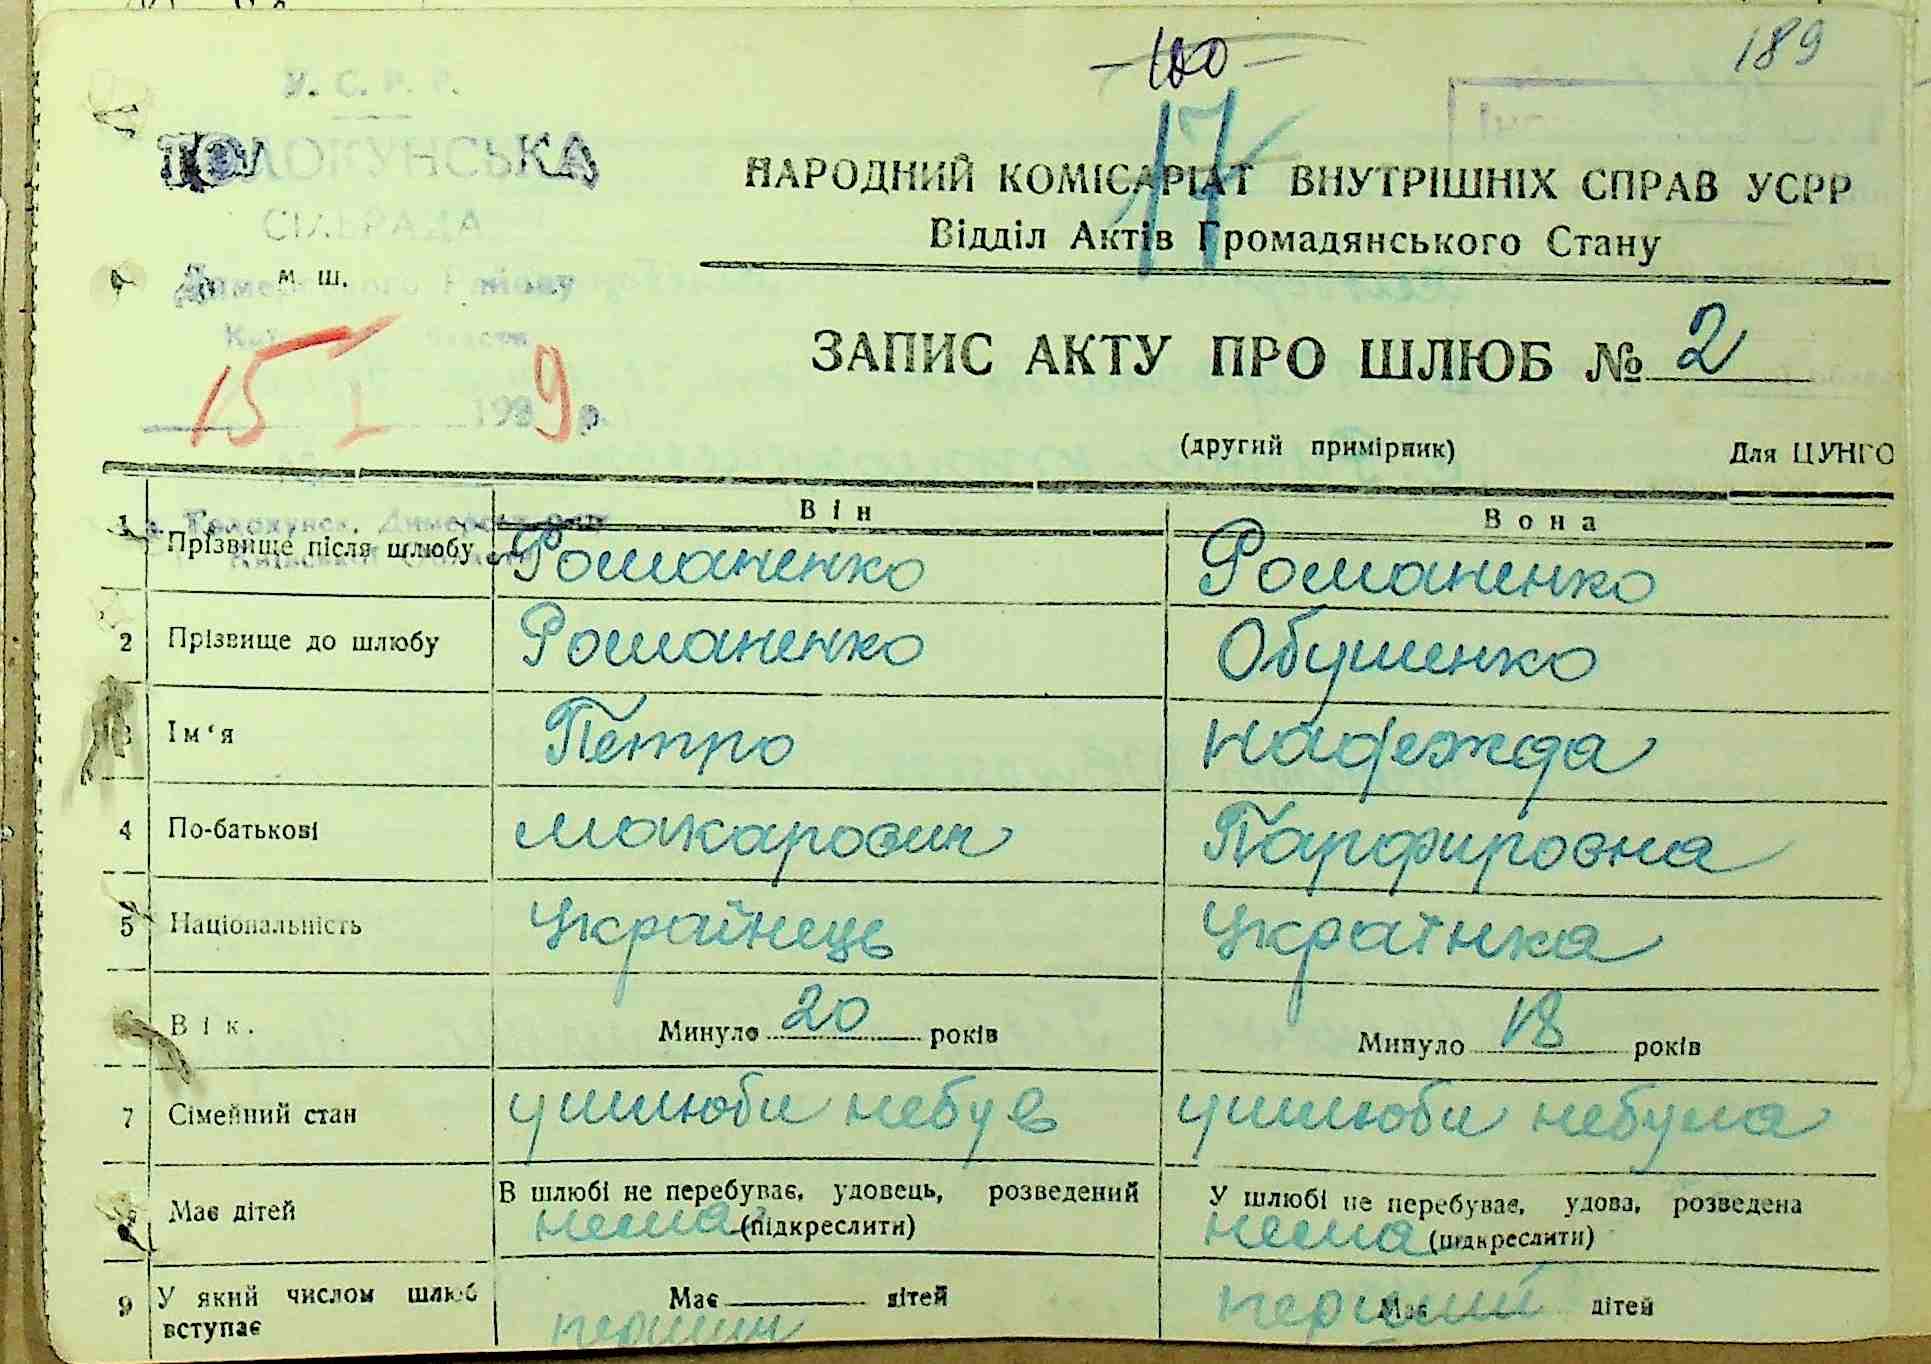 100
189
17
У. С. Р. Р.
ТОЛОКУНСЬКА
СІЛЬРАДА
м ш.
НАРОДНИЙ КОМІСАРІАТ ВНУТРІШНІХ СПРАВ УСРР
Відділ Актів Громадянського Стану
ЗАПИС АКТУ ПРО ШЛЮБ № 2
15 I 1939 р.
(другий примірник) Для ЦУНГО
Він Вона
1 Прізвище після шлюбу Романенко Романенко
2 Прізвище до шлюбу Романенко Обушенко
3 Ім‘я Петро Надежда
4 По-батькові Макарович Парфировна
5 Національність Українець Українка
6 Вік. Минуло 20 років Минуло 18 років
7 Сімейний стан ушлюби небув ушлюби небула
В шлюбі не перебуває, удовець, розведений У шлюбі не перебуває, удова, розведена
8 Має дітей нема (підкреслити) нема (підкреслити)
9 У який числом шлюб вступає Має дітей Має дітей
перший перший